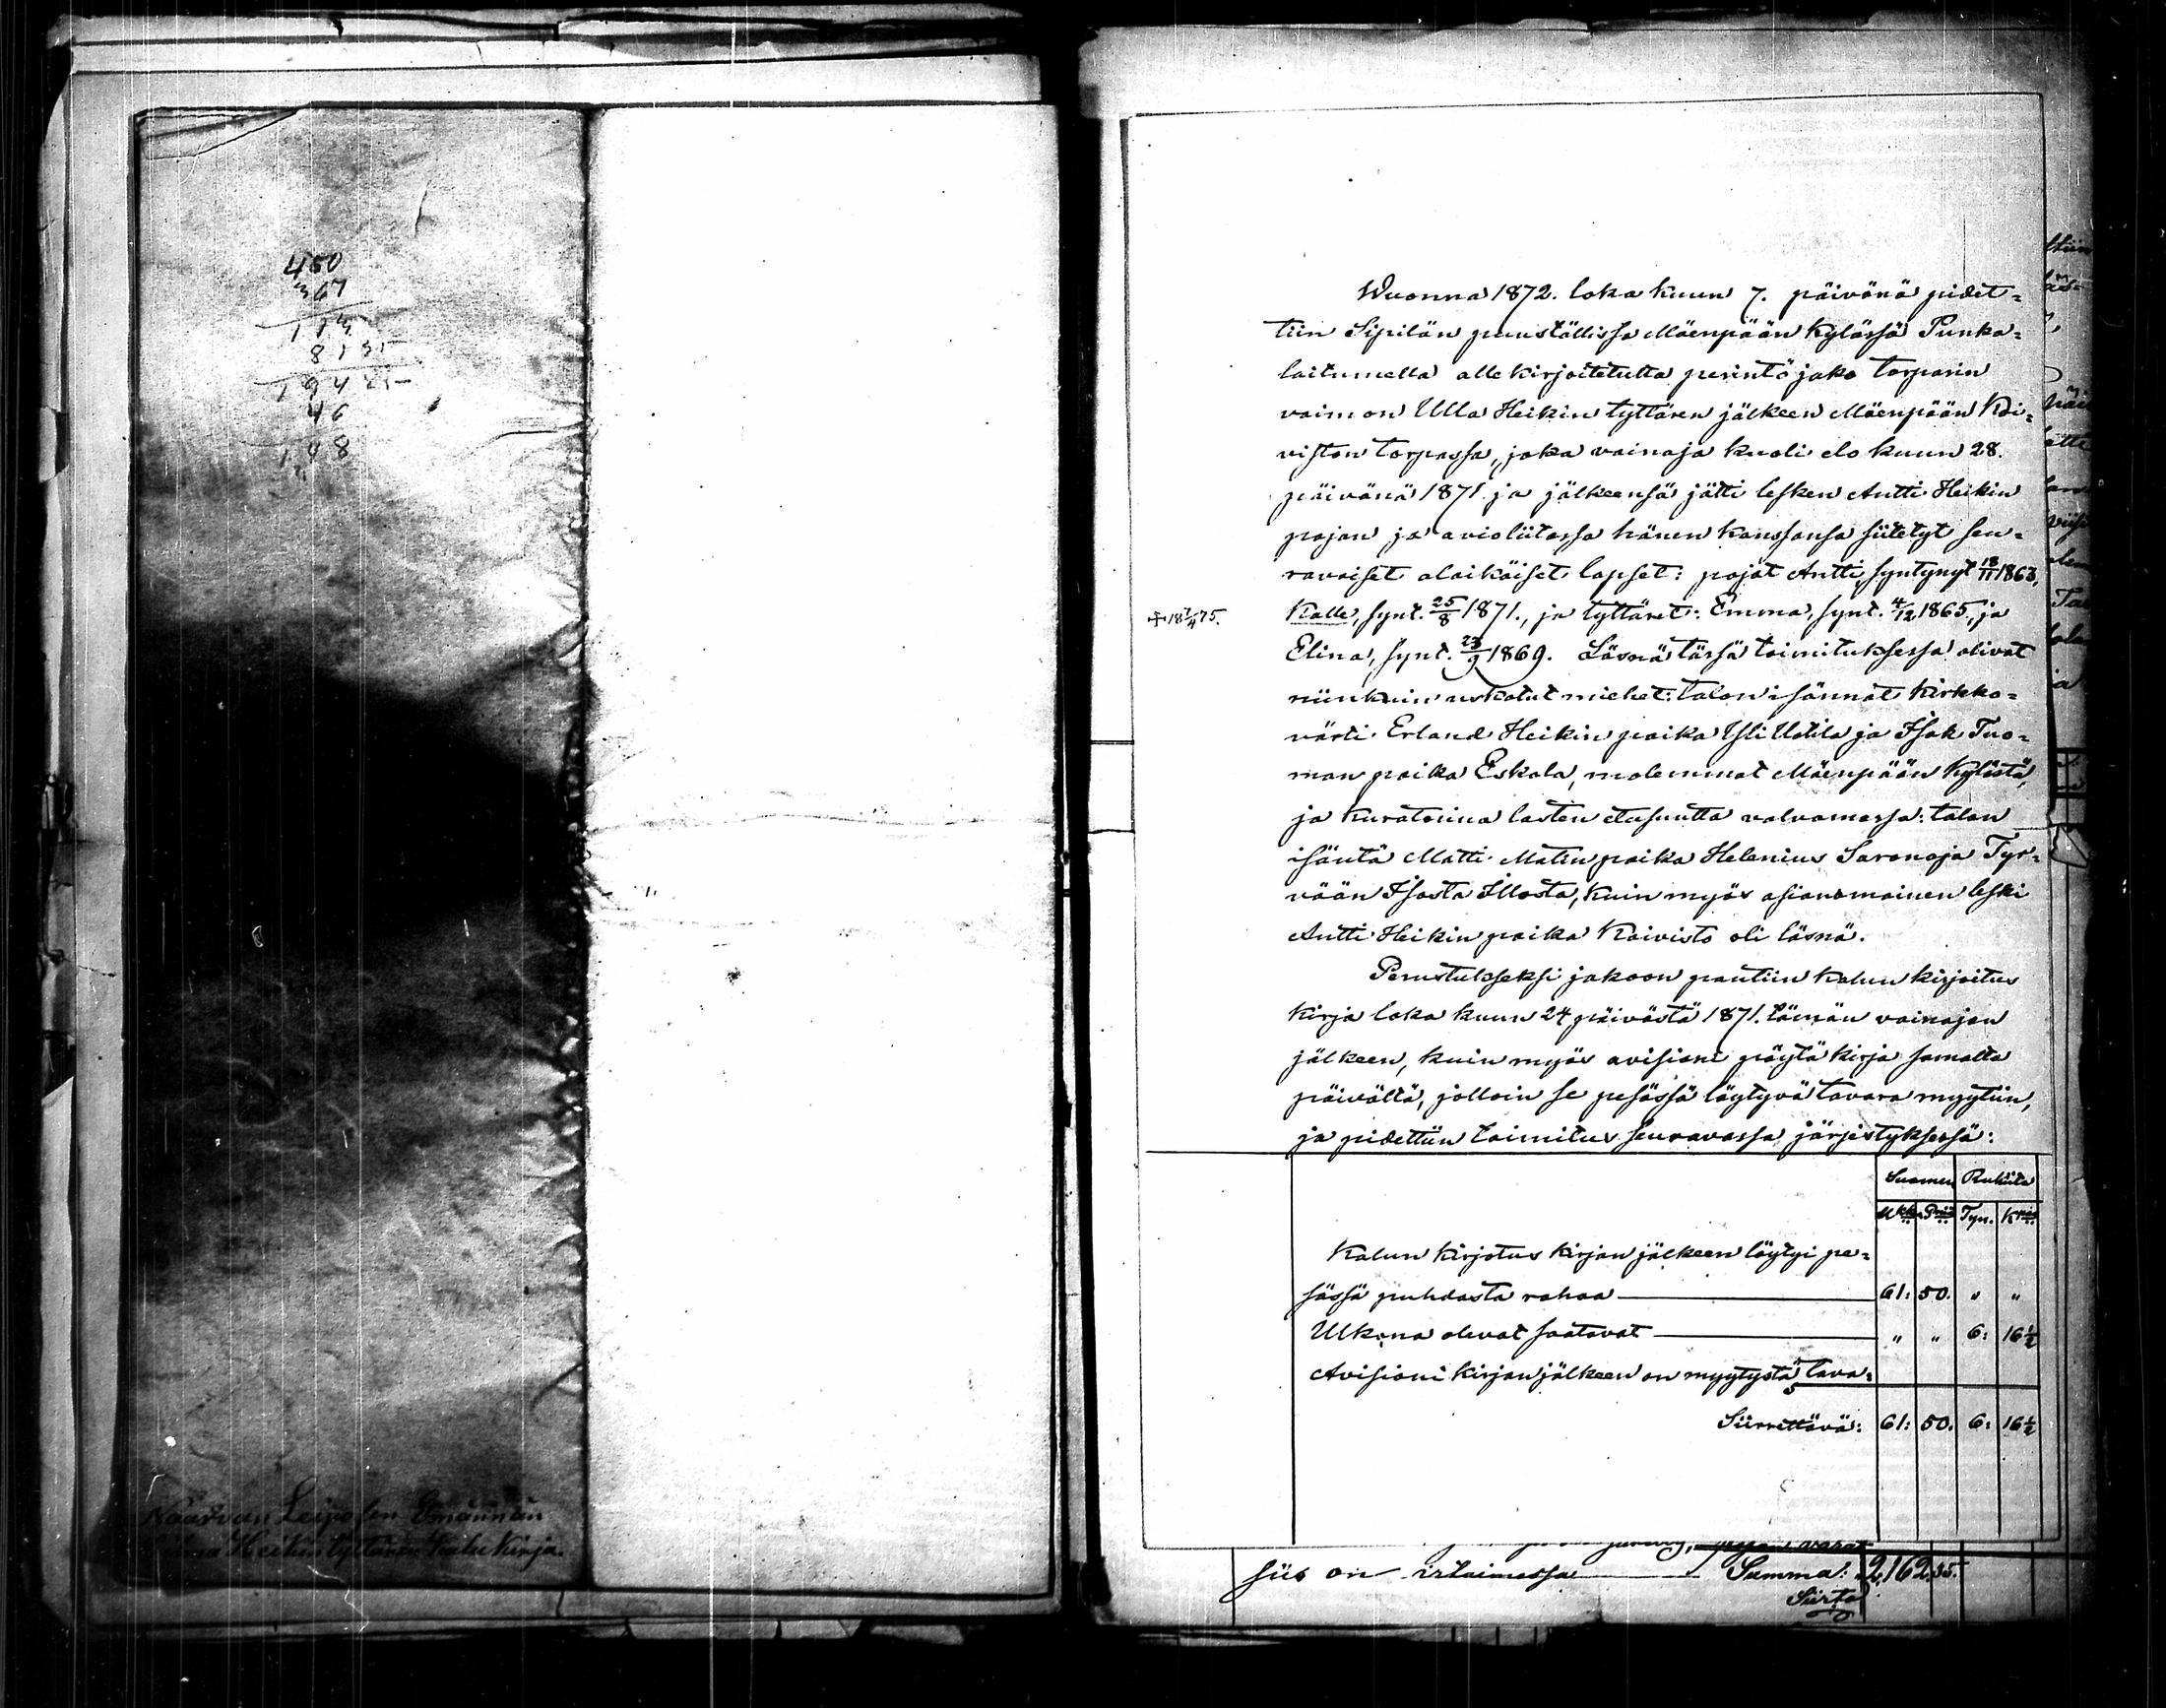 450
367
113
81 35
194 25
46
148
Naarvan Leiposen Emännän
Heikin tyttären kalu kirja.
Wuonna 1872. loka kuun 7. päivänä pidet=
tiin Sipilän puuställissa Mäenpään kylässä Punka=
laitumella allekirjoitetulta perintö jako torparin
vaimon Ulla Heikin tyttären jälkeen Mäenpään Koi=
viston torpassa, joka vainaja kuoli elo kuun 28.
päivänä 1871 ja jälkeensä jätti lesken Antti Heikin
pojan ja avioliitossa hänen kanssansa siitetyt seu=
ravaiset alaikäiset lapset: pojat Antti, syntynyt 18/11 1863,
+ 18 7/4 75.
Kalle, synt. 25/8 1871., ja tyttäret: Emma, synt. 4/12 1865, ja
Elina, synt. 23/9 1869. Läsnä tässä toimituksessa olivat
niinkuin uskotut miehet: talon isännät kirkko=
värti Erland Heikin poika Yli Uotila ja Isak Tuo=
man poika Eskola, molemmat Mäenpään kylästä,
ja kuratorina lasten etusuutta valvomassa: talon
isäntä Matti Matin poika Helenius Saronoja Tyr=
vään Isosta Illosta, kuin myös asianomainen leski
Antti Heikin poika Koivisto oli läsnä.
Perustukseksi jakoon pantiin kalun kirjoitus
kirja loka kuun 24 päivästä 1871. tämän vainajan
jälkeen, kuin myös avisioni pöytä kirja samalta
päivältä, jolloin se pesässä löytyvä tavara myytiin,
ja pidettiin toimitus seuravassa järjestyksessä:
Suomen Rukiita
Mkk. Pniä Tyn. Kpia
Kalun kirjotus kirjan jälkeen löytyi pe=
sässä puhdasta rahaa 61: 50. " "
Ulkona olevat saatavat " " 6: 16½
Avisioni kirjan jälkeen on myytystä tava=
Siirrettävä: 61: 50. 6: 16½
siis on irtaimessa Summa: 2,162.35.
Siirto